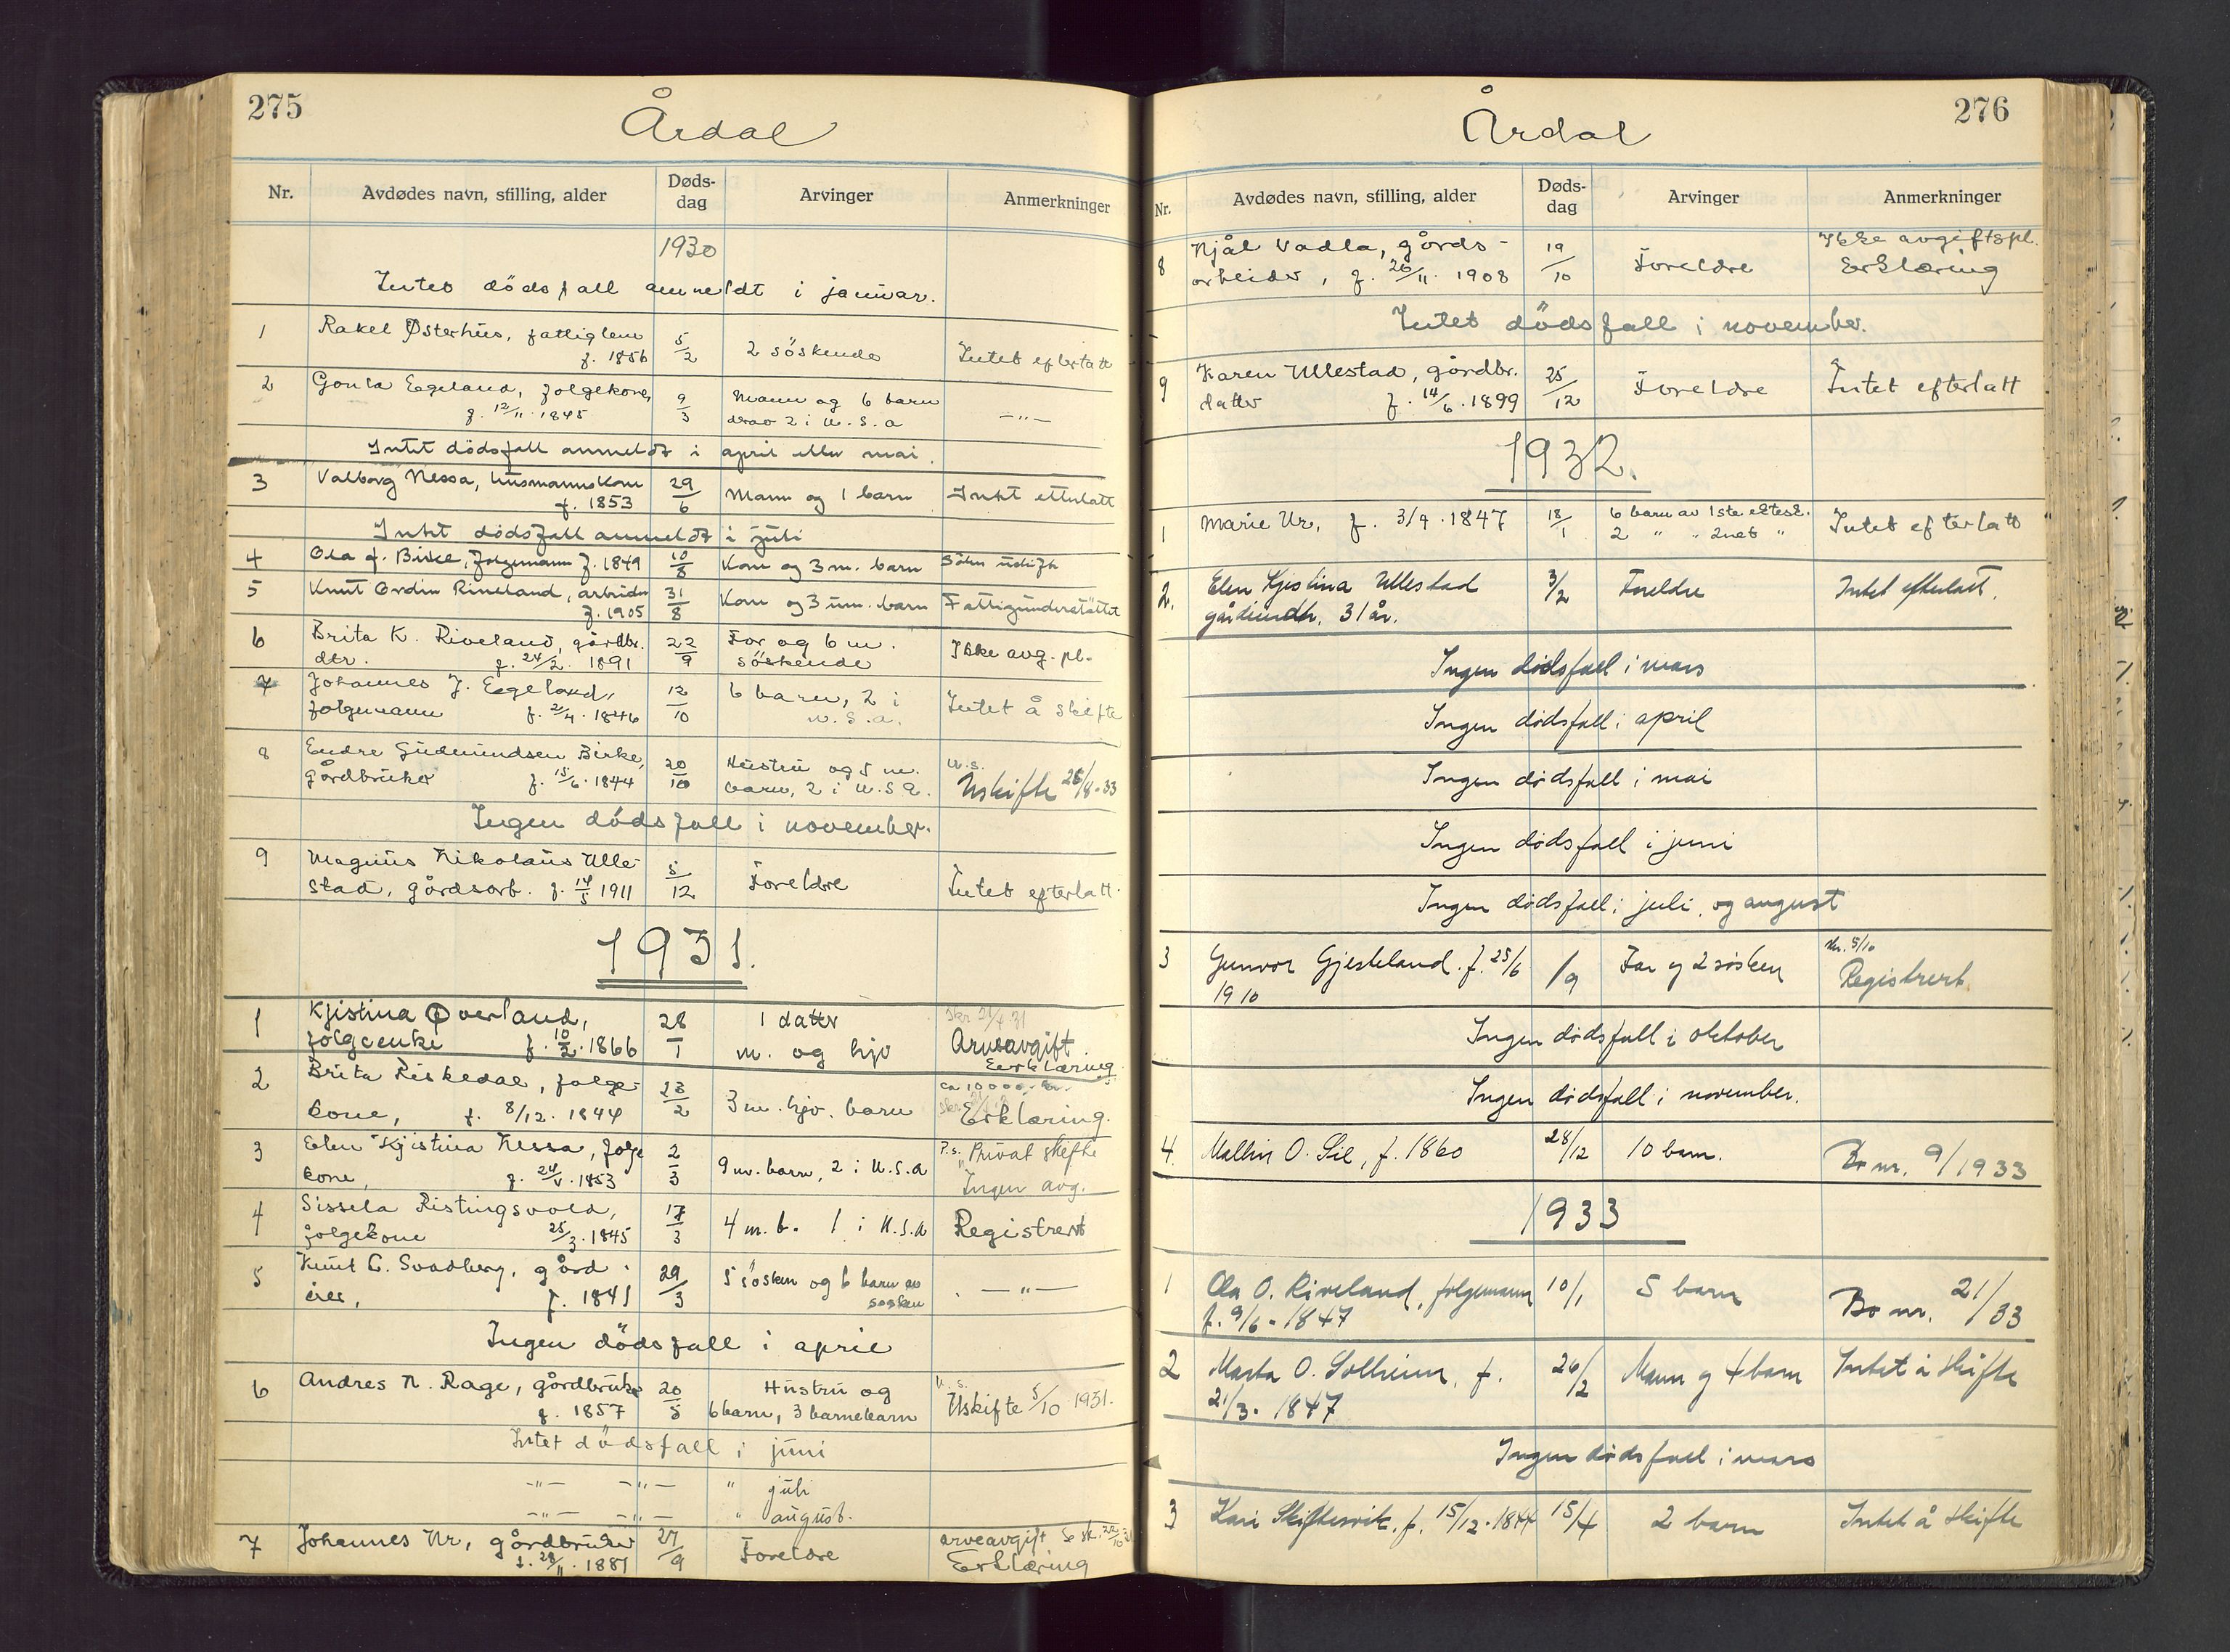 275
Årdal
Nr. Avdødes navn, stilling, alder Døds-dag Arvinger Anmerkninger
1930
Intet dødsfall anmeldt i januar.
1 Rakel Østerhus, fattiglem 5/2 2 söskende Intet efterlatt
f. 1856
2 Gonla Eegeland, folgekone, 9/3 Mann og 6 barn —"—
f. 12/11. 1845 derav 2 i U.S.a
Intet dödsfall anmeldt i april eller mai.
3 Valborg Nessa, husmannskone 29/6 Mann og 1 barn Intet etterlatt
f. 1853
Intet dödsfall anmeldt i juli
4 Ola . Birke, folgemann f. 1849 10/8 Kone og 3 m. barn
5 Knut Ordin Riveland, arbeider 31/8 Kone og 3 um. barn Fattigunderstöttet
f. 1905
6 Brita K. Riveland, gårdbr. 22/9 Far og 6 m. Ikke avg. pl.
dtr. f. 24/2. 1891 söskende
7 Johannes J. Eegeland, 12/10 6 barn, 2 i Intet å skifte
folgemann f. 2/4. 1846 U.S.a.
8 Endre Gudmundsen Birke, 20/10 Hustru og 5 m. U.s.
gårdbruker f. 15/6. 1844 barn, 2 i U.S.a. Uskifte 26/8-33
Ingen dödsfall i november.
9 Magnus Nikolaus Ulle- 5/12 Foreldre Intet efterlatt.
stad, gårdsarb. f. 14/5 1911
1931.
1 Kjistina Øverland, 28/1 1 datter skr 21/4 31
folgeenke f. 10/2. 1866 m. og hjv Arveavgift
Erklæring
2 Brita Riskedal, folge- 23/2 3 m. hjv. barn ca 10000,- kr.
kone, f. 8/12. 1844 Erklæring.
3 Elen Kjistina Nessa, folge 2/3 9 m. barn, 2 i U.S.a P.s. Privat skifte
kone, f. 24/V. 1853 Ingen avg.
4 Sissela Ristingsvold, 17/3 4 m. b. 1 i U.S.a Registrert
folgekone 25/3. 1845
5 Knut L. Svadberg, gård- 29/3 5 søsken og 6 barn av —"—
eier, f. 1841 søsken
Ingen dödsfall i april
6 Andres N. Rage, gårdbruker 20/5 Hustru og U.s.
f. 1857 6 barn, 3 barnebarn Uskifte 5/10 1931.
Intet dödsfall i juni
—"— —"— " juli
—"— —"— " august.
7 Johannes Ur, gårdbruker 27/9 Foreldre arveavgift Se sk. 22/10 31
f. 28/11. 1881 Erklæring
276
Årdal
Nr. Avdødes navn, stilling, alder Døds-dag Arvinger Anmerkninger
8 Njål Vadla, gårds- 19/10 Foreldre Ikke avgiftspl.
arbeider, f. 26/11. 1908 Erklæring
Intet dödsfall i november.
9 Karen Ullestad, gårdbr. 25/12 Foreldre Intet efterlatt
datter f. 14/6. 1899
1932.
1 Marie Ur, f. 3/4. 1847 18/1 6 barn av 1ste ektesk. Intet efterlatt
2 " " 2net "
2. Elen Kjistina Ullestad 3/2 Foreldre Intet efterlatt.
31 år.
Ingen dødsfall i mars
Ingen dødsfall i april
Ingen dødsfall i mai
Ingen dødsfall i juni
Ingen dødsfall i juli og august
3 Gunvor Gjesteland. f. 25/6 /9 Far og 2 søsken 5/10
1910 Registrert.
Ingen dødsfall i oktober
Ingen dødsfall i november.
4. Mallin O. Sie, f. 1860 28/12 10 barn. Bo nr. 9/1933
1933
1 Ola O. Riveland, folgemann 10/1 5 barn Bo nr. 21/33
f. 9/6 - 1847
2 Marta O. Solheim, f. 26/2 Mann og 4 barn Intet å skifte
21/3. 1847
Ingen dødsfall i mars
3 Kari Skiftesvik. f. 15/12. 1844 15/4 2 barn Intet å skifte